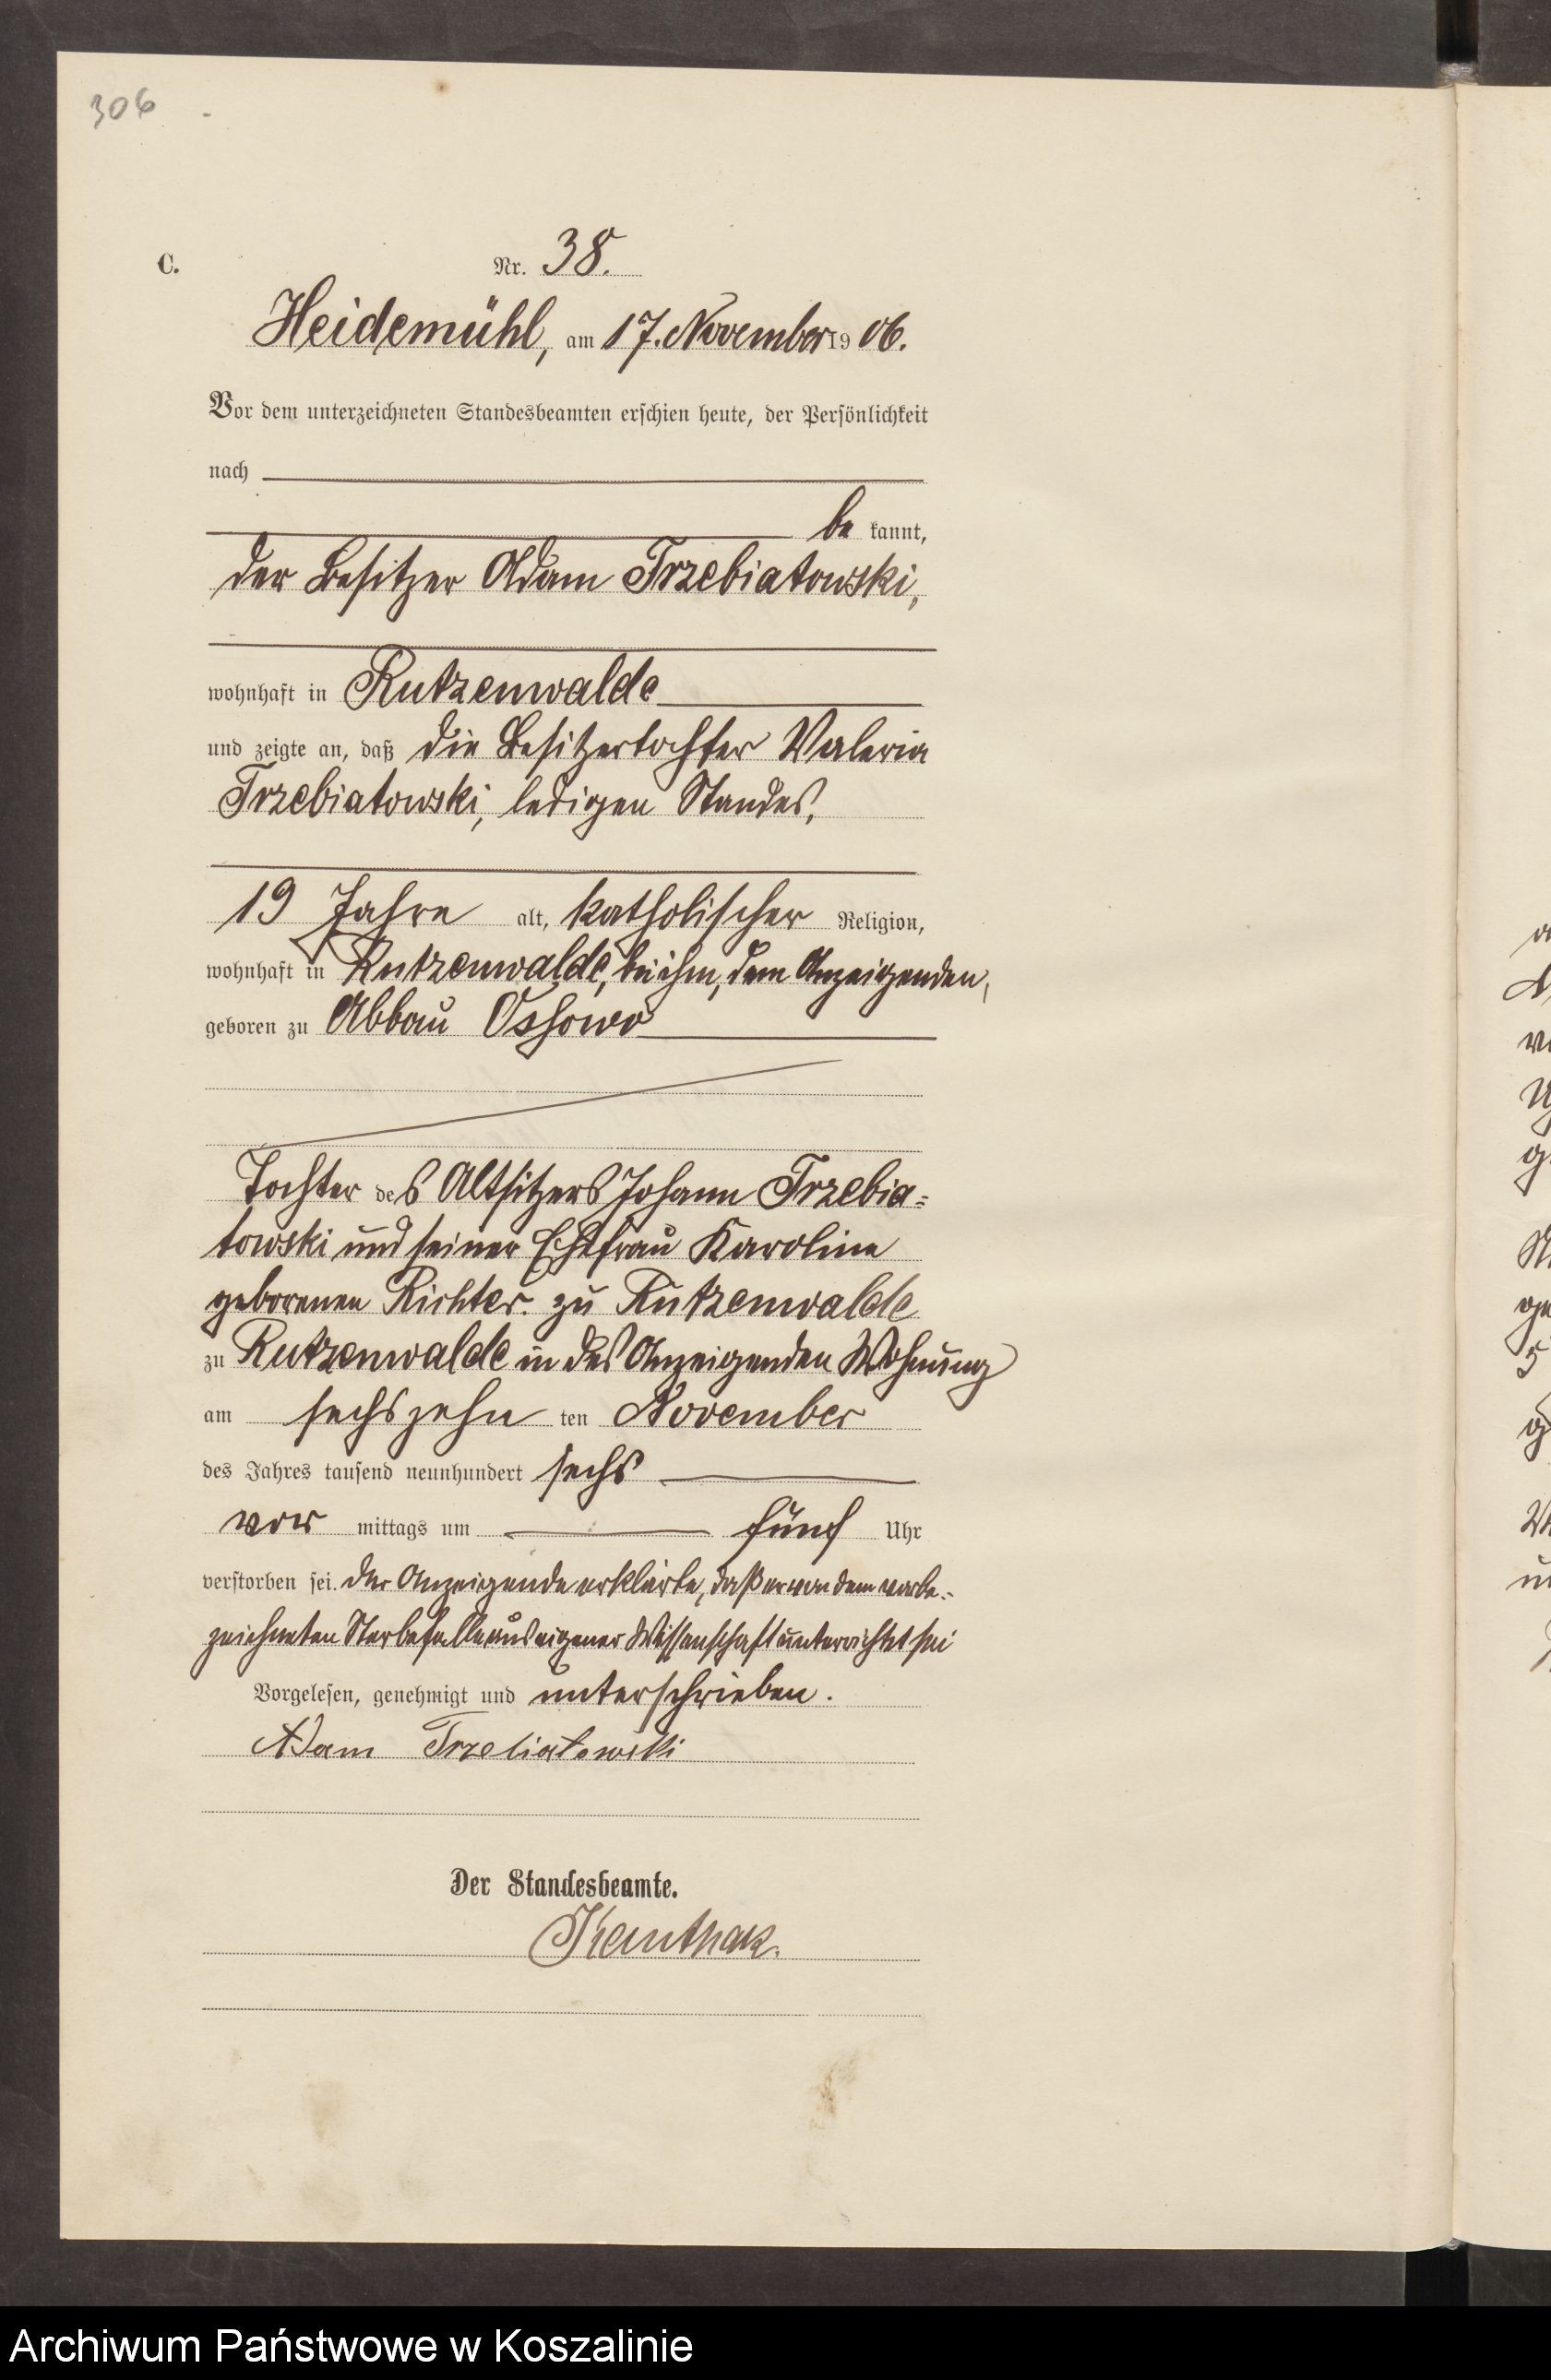 306
C.
Nr. 38.
Heidemühl, am 17. November 1906.
Vor dem unterzeichneten Standesbeamten erschien heute, der Persönlichkeit
nach
be kannt,
der Besitzer Adam Trzebiatowski,
wohnhaft in Rutzenwalde
und zeigte an, daß die Besitzertochter Valeria
Trzebiatowski, ledigen Standes,
19 Jahre alt, katholischer Religion,
wohnhaft in Rutzenwalde, bei ihm, dem Anzeigenden,
geboren zu Abbau Ossowo
Tochter des Altsitzers Johann Trzebia=
towski und seiner Ehefrau Karoline
geborenen Richter. zu Rutzenwalde
zu Rutzenwalde in des Anzeigenden Wohnung
am sechszehn ten November
des Jahres tausend neunhundert sechs
vor mittags um fünf Uhr
verstorben sei. Der Anzeigende erklärte, daß er von dem vorbe=
zeichneten Sterbefalle aus eigener Wissenschaft unterrichtet sei
Vorgelesen, genehmigt und unterschrieben.
Adam Trzebiatowski
Der Standesbeamte.
Archiwum Państwowe w Koszalinie